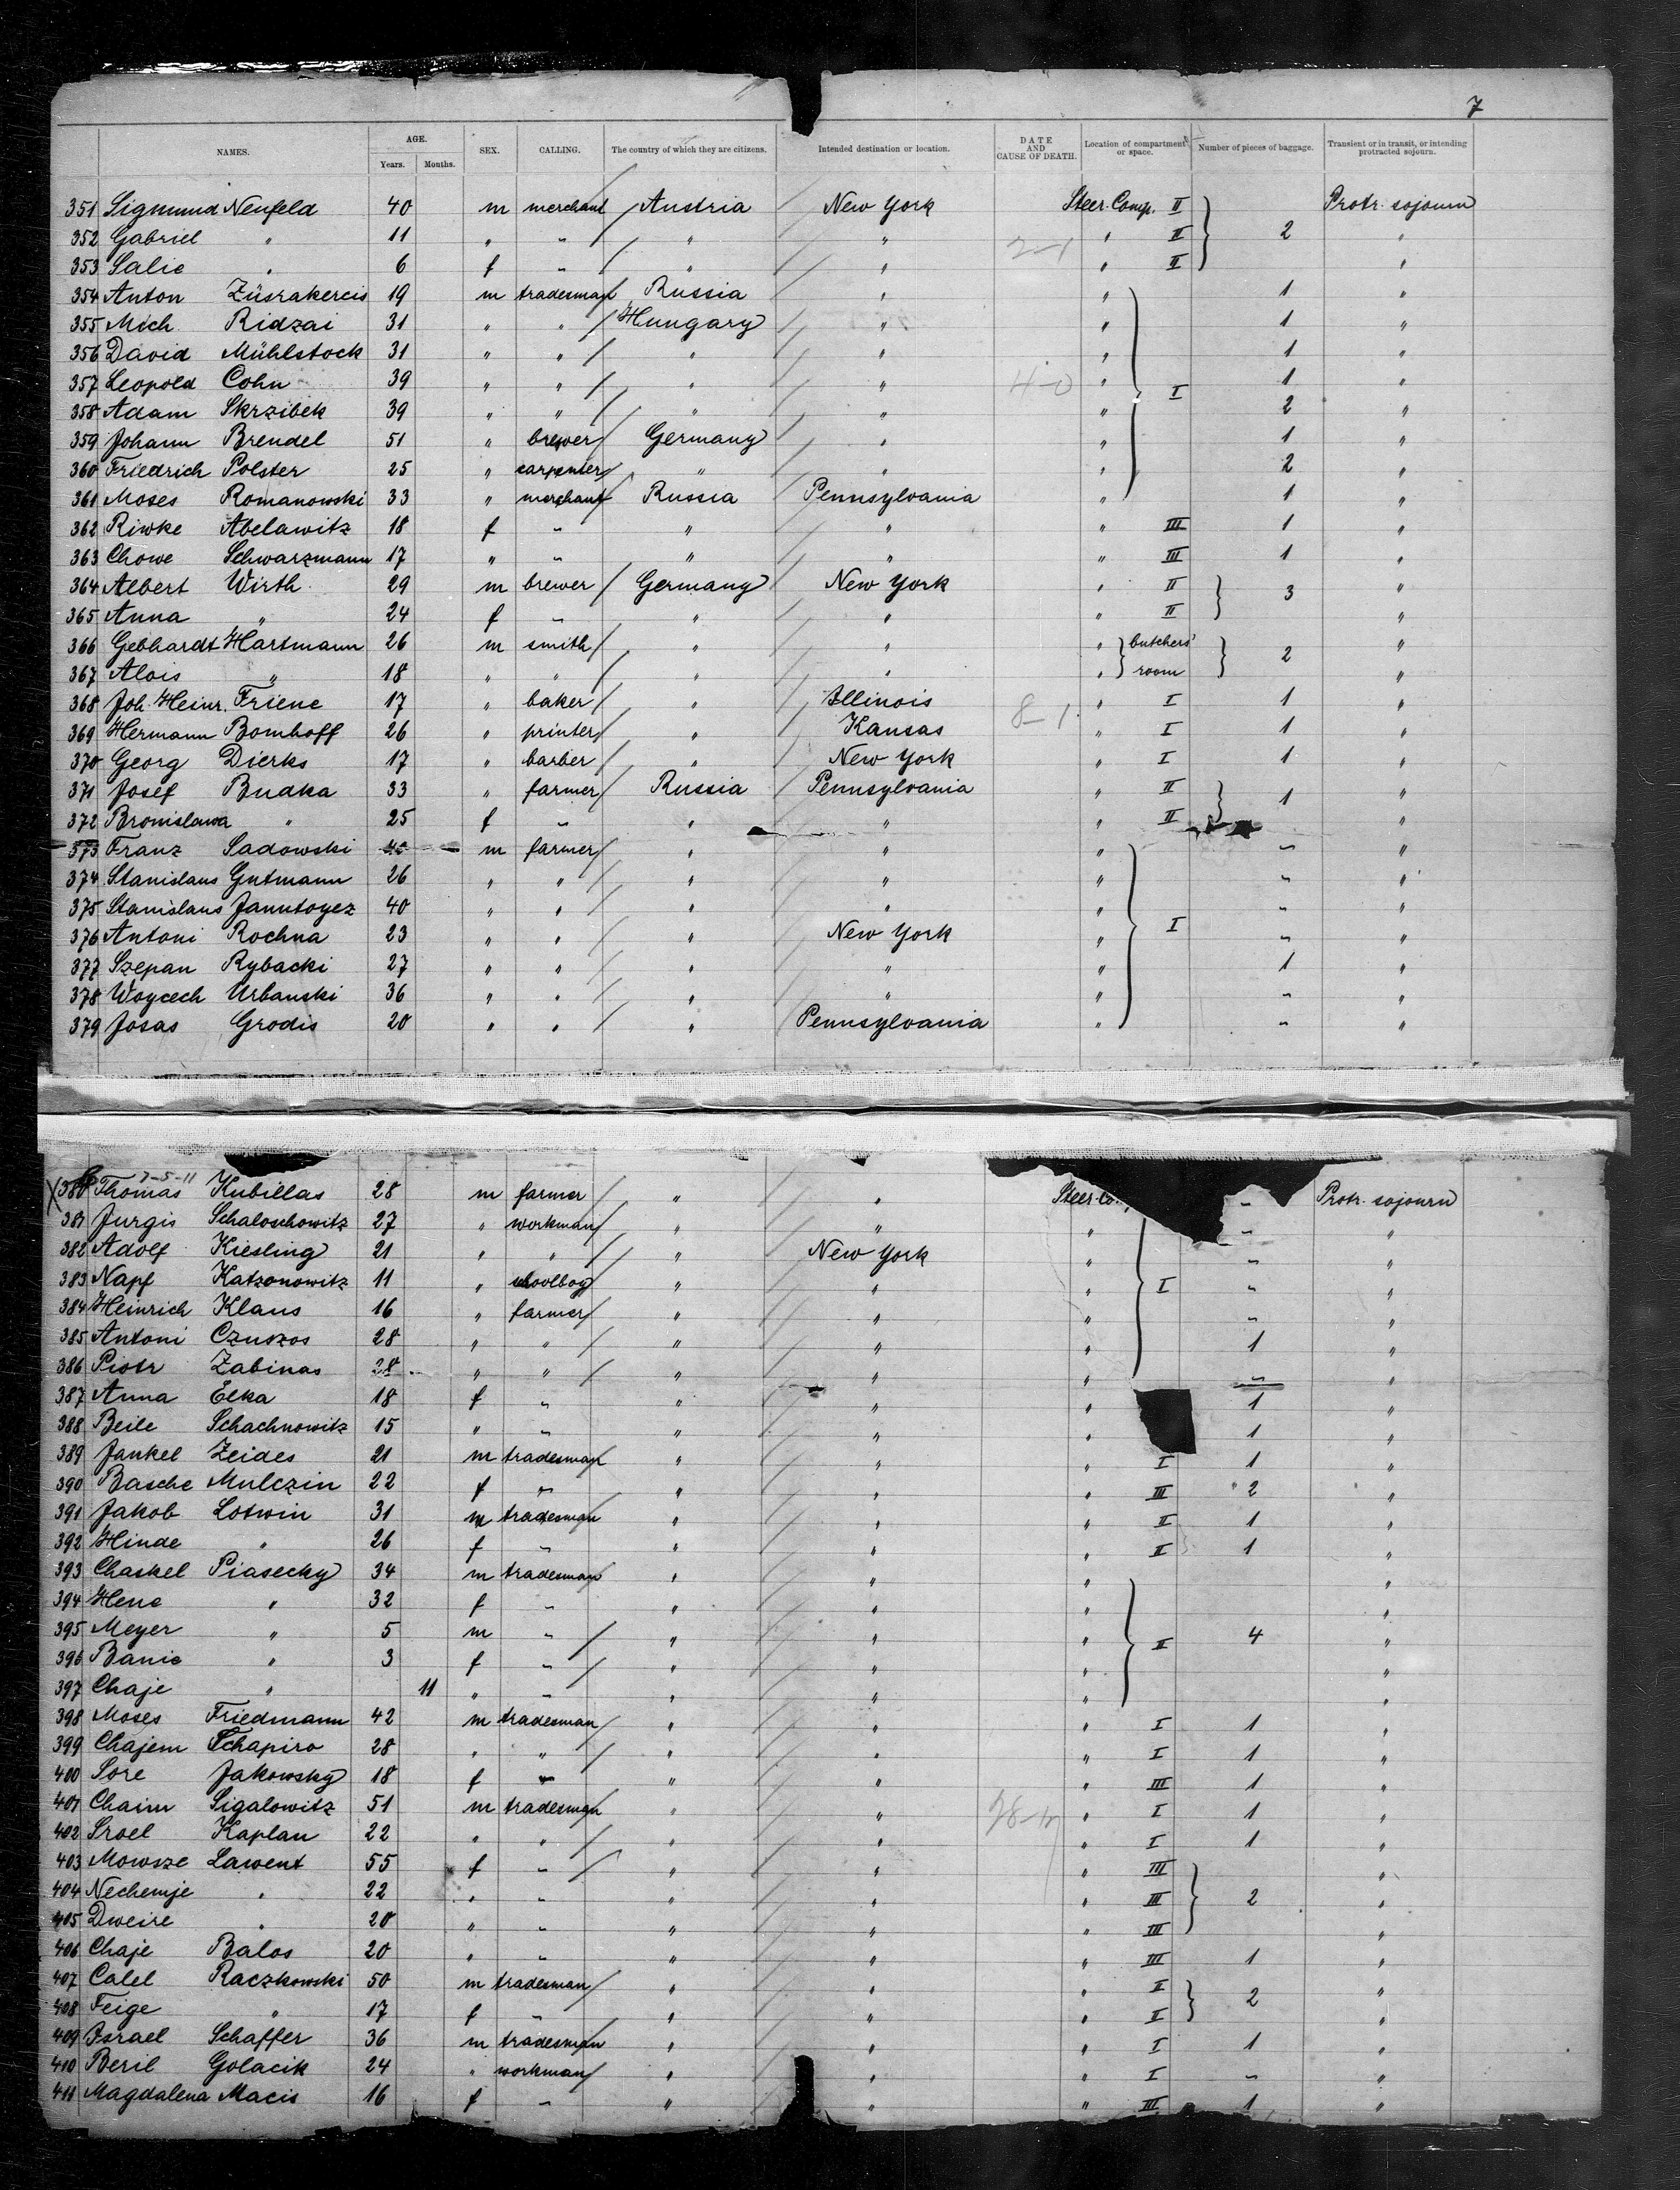 7
NAMES. AGE. Years. Months. SEX. CALLING. The country of which they are citizens. Intended destination or location. DATE AND CAUSE OF DEATH. Location of compartment or space. Number of pieces of baggage. Transient or in transit, or intending protracted sojourn.
351 Sigmund Neufeld 40 m merchant Austria New York Steer. Comp. II Protr. sojourn
352 Gabriel " 11 " " " " 2-1 " II 2 "
353 Salie " 6 f " " " " II "
354 Anton Züsrakercis 19 m tradesman Russia " " 1 "
355 Mich Ridzai 31 " " Hungary " " 1 "
356 David Mühlstock 31 " " " " " 1 "
357 Leopold Cohn 39 " " " " 4-0 " I 1 "
358 Adam Skrzibek 39 " " " " " 2 "
359 Johann Brendel 51 " brewer Germany " " 1 "
360 Friedrich Polster 25 " carpenter " " " 2 "
361 Moses Romanowski 33 " merchant Russia Pennsylvania " 1 "
362 Riwke Abelawitz 18 f " " " " III 1 "
363 Chowe Schwarzmann 17 " " " " " III 1 "
364 Albert Wirth 29 m brewer Germany New York " II 3 "
365 Anna " 24 f " " " " II "
366 Gebhardt Hartmann 26 m smith " " " butchers' 2 "
367 Alois " 18 " " " " " room "
368 Joh. Heinr. Friene 17 " baker " Illinois 8-1 " I 1 "
369 Hermann Bomhoff 26 " printer " Kansas " I 1 "
370 Georg Dierks 17 " barber " New York " I 1 "
371 Josef Budka 33 " farmer Russia Pennsylvania " II 1 "
372 Bronislawa " 25 f " " " " II "
373 Franz Sadowski m farmer " " " " "
374 Stanislaus Gutmann 26 " " " " " " "
375 Stanislaus Janutoyez 40 " " " " " " "
376 Antoni Rochna 23 " " " New York " I " "
377 Szepan Rybacki 27 " " " " " 1 "
378 Woycech Urbanski 36 " " " " " " "
379 Josas Grodis 20 " " " Pennsylvania " " "
7-5-11
380 Thomas Kubillas 28 m farmer " " Steer. Co. " Protr. sojourn
381 Jurgis Schaloschowitz 27 " workman " " " " "
382 Adolf Kiesling 21 " " " New York " " "
383 Napf Katzonowitz 11 " schoolboy " " " I " "
384 Heinrich Klaus 16 " farmer " " " " "
385 Antoni Czuszos 28 " " " " " 1 "
386 Piotr Zabinas 28 " " " " " " "
387 Anna Elka 18 f " " " " 1 "
388 Beile Schachnowitz 15 " " " " " 1 "
389 Jankel Zeides 21 m tradesman " " " I 1 "
390 Basche Mulczin 22 f " " " " III 2 "
391 Jakob Lotwin 31 m tradesman " " " II 1 "
392 Hinde " 26 f " " " " II 1 "
393 Chaskel Piasecky 34 m tradesman " " " "
394 Hene " 32 f " " " " "
395 Meyer " 5 m " " " " II 4 "
396 Banie " 3 f " " " " "
397 Chaje " 11 " " " " " "
398 Moses Friedmann 42 m tradesman " " " I 1 "
399 Chajem Schapiro 28 " " " " " I 1 "
400 Sore Jakowsky 18 f " " " " III 1 "
401 Chaim Sigalowitz 51 m tradesman " " " I 1 "
402 Sroel Kaplan 22 " " " " " I 1 "
403 Mowsze Lawent 55 f " " " " III "
404 Nechemje " 22 " " " " " III 2 "
405 Dweire " 20 " " " " " III "
406 Chaje Balos 20 " " " " " III 1 "
407 Calel Raczkowski 50 m tradesman " " " II 2 "
408 Feige " 17 f " " " " II "
409 Israel Schaffer 36 m tradesman " " " I 1 "
410 Beril Golacik 24 " workman " " " I " "
411 Magdalena Macis 16 f " " " " III 1 "